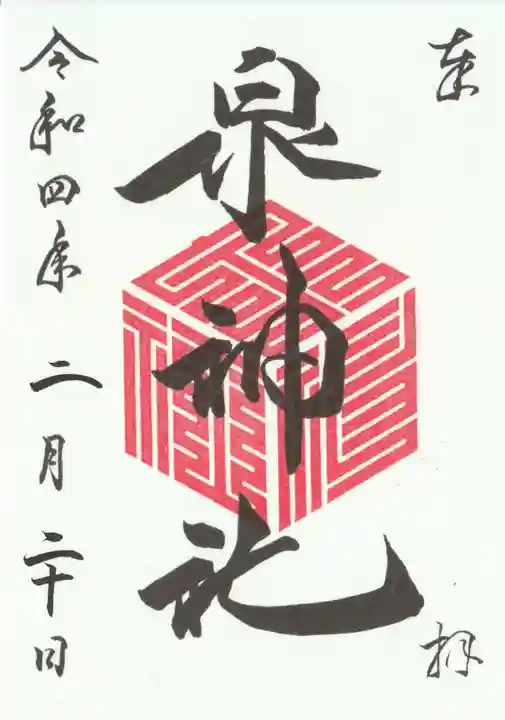 奉拝
泉神社
令和四年
二月二十日